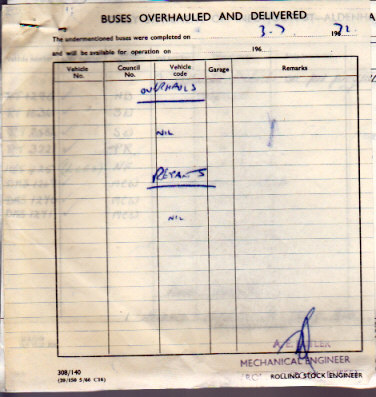 BUSES OVERHAULED AND DELIVERED
The undermentioned buses were completed on 3-7 1972
and will be available for operation on 196
Vehicle No. Council No. Vehicle code Garage Remarks
OVERHAULS
NIL
REPAINTS
NIL
MECHANICAL ENGINEER
ROLLING STOCK ENGINEER
308/140
(20/150 5/66 C16)